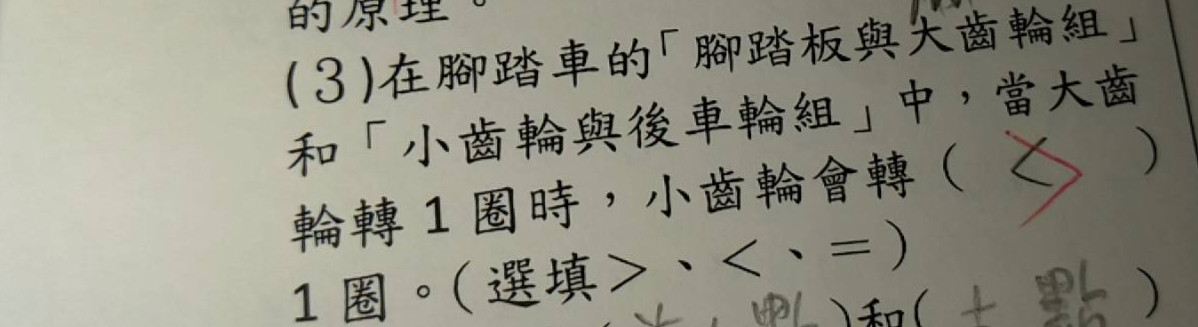 的原理。
(3)在腳踏車的「腳踏板與大齒輪組」
和「小齒輪與後車輪組」中，當大齒
輪轉1圈時，小齒輪會轉( < > )
1圈。(選填>、<、=)
)和( 點 )